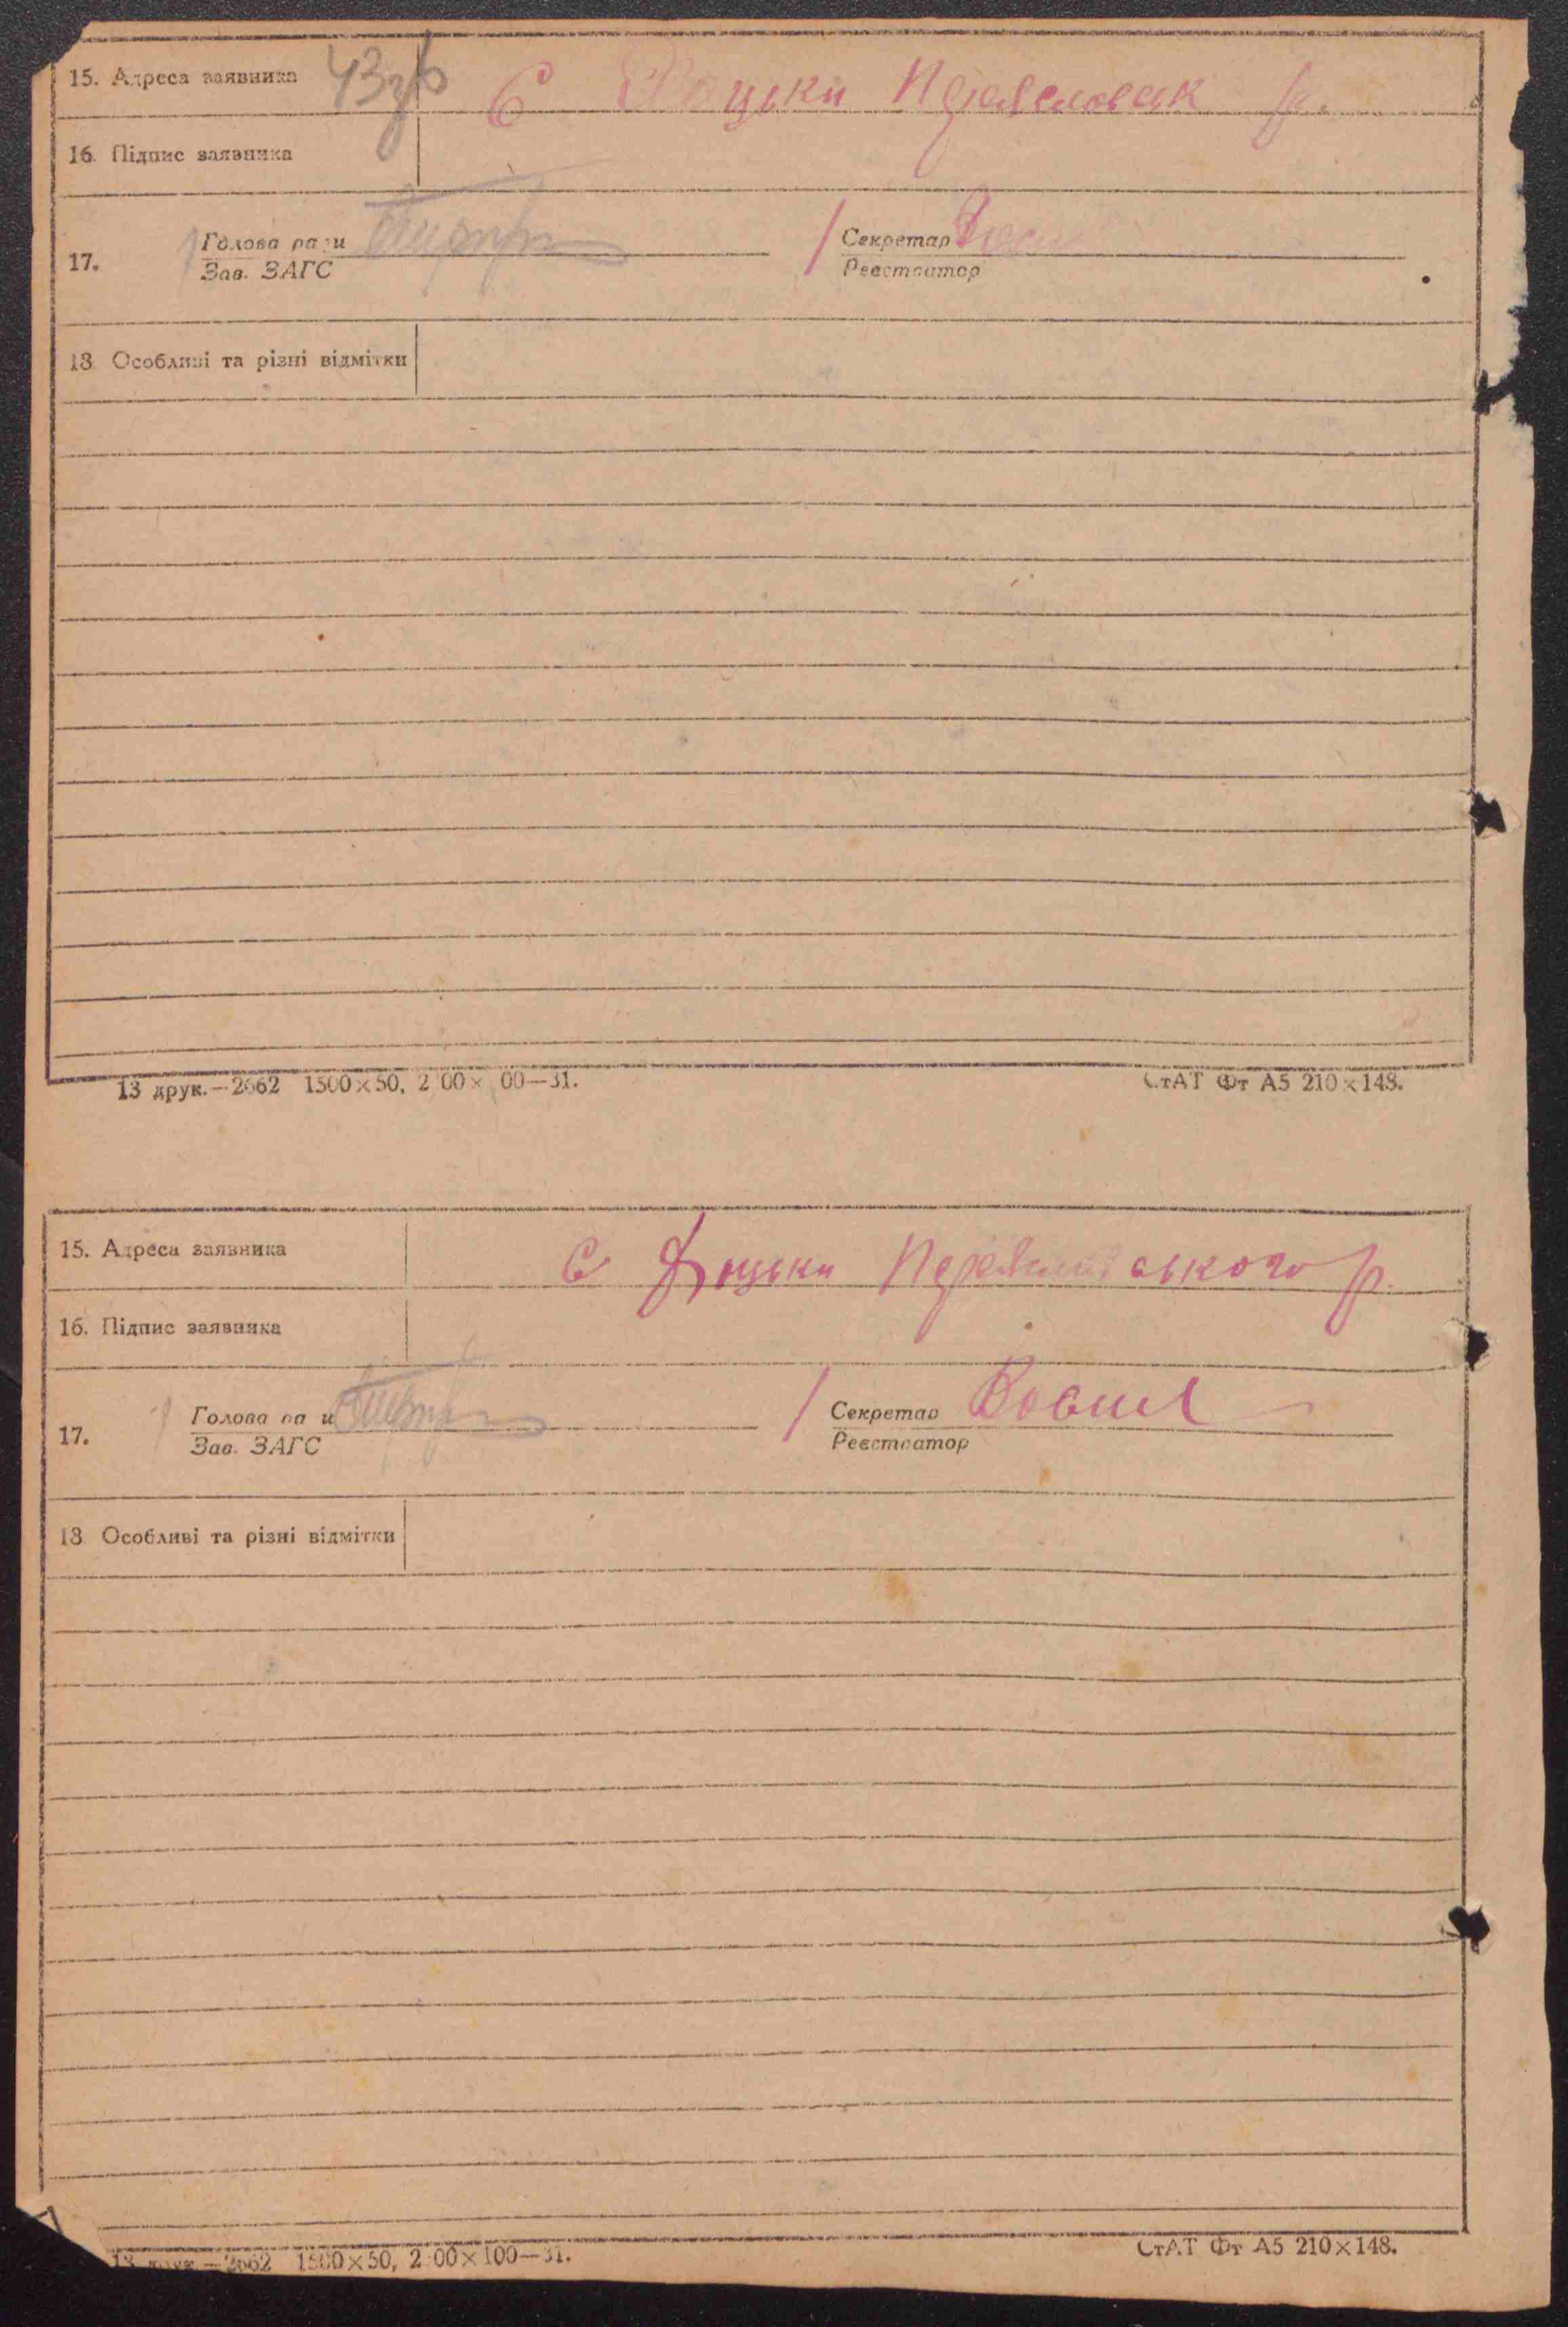 15. Адреса заявника 43зв С Фоцьки Переяславськ р.
16. Підпис заявника
17. Голова ради Секретар
Зав. ЗАГС Реєстратор
18. Особливі та різні відмітки
13 друк.—2662 1500×50, 2 00× 00—31. СтАТ Фт А5 210×148.
15. Адреса заявника С Фоцьки Переяславського р.
16. Підпис заявника
17. Голова ради Секретар
Зав. ЗАГС Реєстратор
18. Особливі та різні відмітки
13 друк.—2662 1500×50, 2 00×100—31. СтАТ Фт А5 210×148.